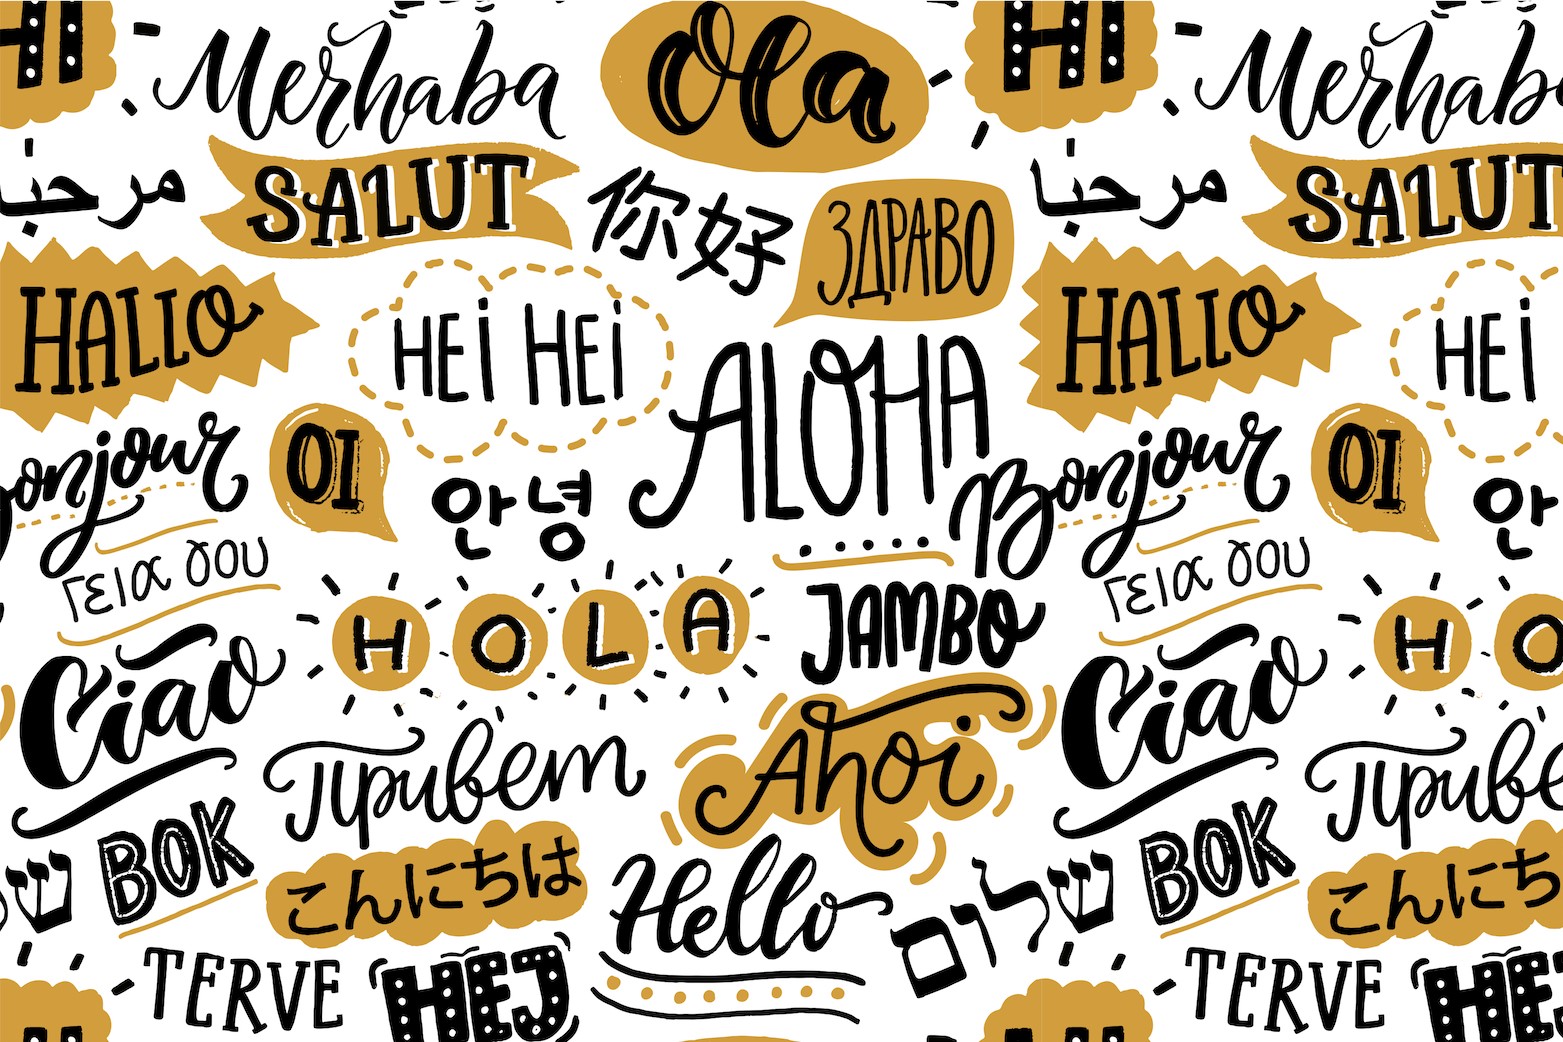 HI
Merhaba
Ola
HI
Merhab
مرحبا
SALUT
你好
ЗДРАВО
مرحبا
SALUT
HALLO
HEI HEI
ALOHA
HALLO
HEI
onjour
OI
안녕
Bonjour
OI
안
Γεια σου
HOLA
JAMBO
Γεια σου
HO
Ciao
Привет
Ahoi
Ciao
Приве
BOK
こんにちは
Hello
שלום
BOK
こんにち
TERVE
HEJ
TERVE
HEJ